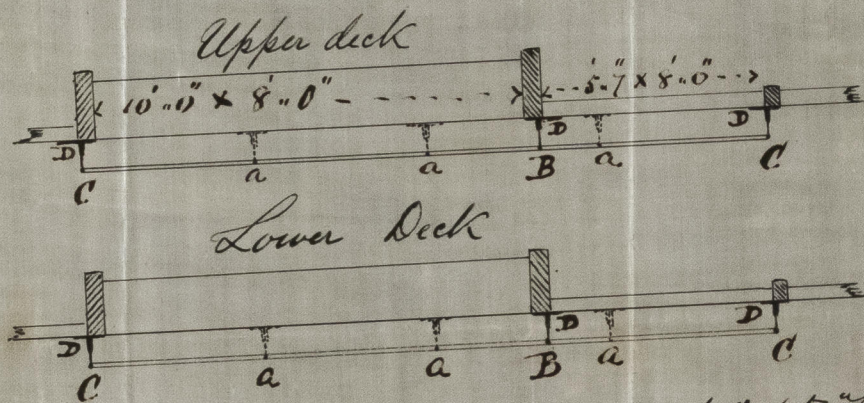 Upper deck
10'..0" × 8'..0" 5'..7 × 8'..0"
D D D
C a a B a C
Lower Deck
D D D
C a a B a C